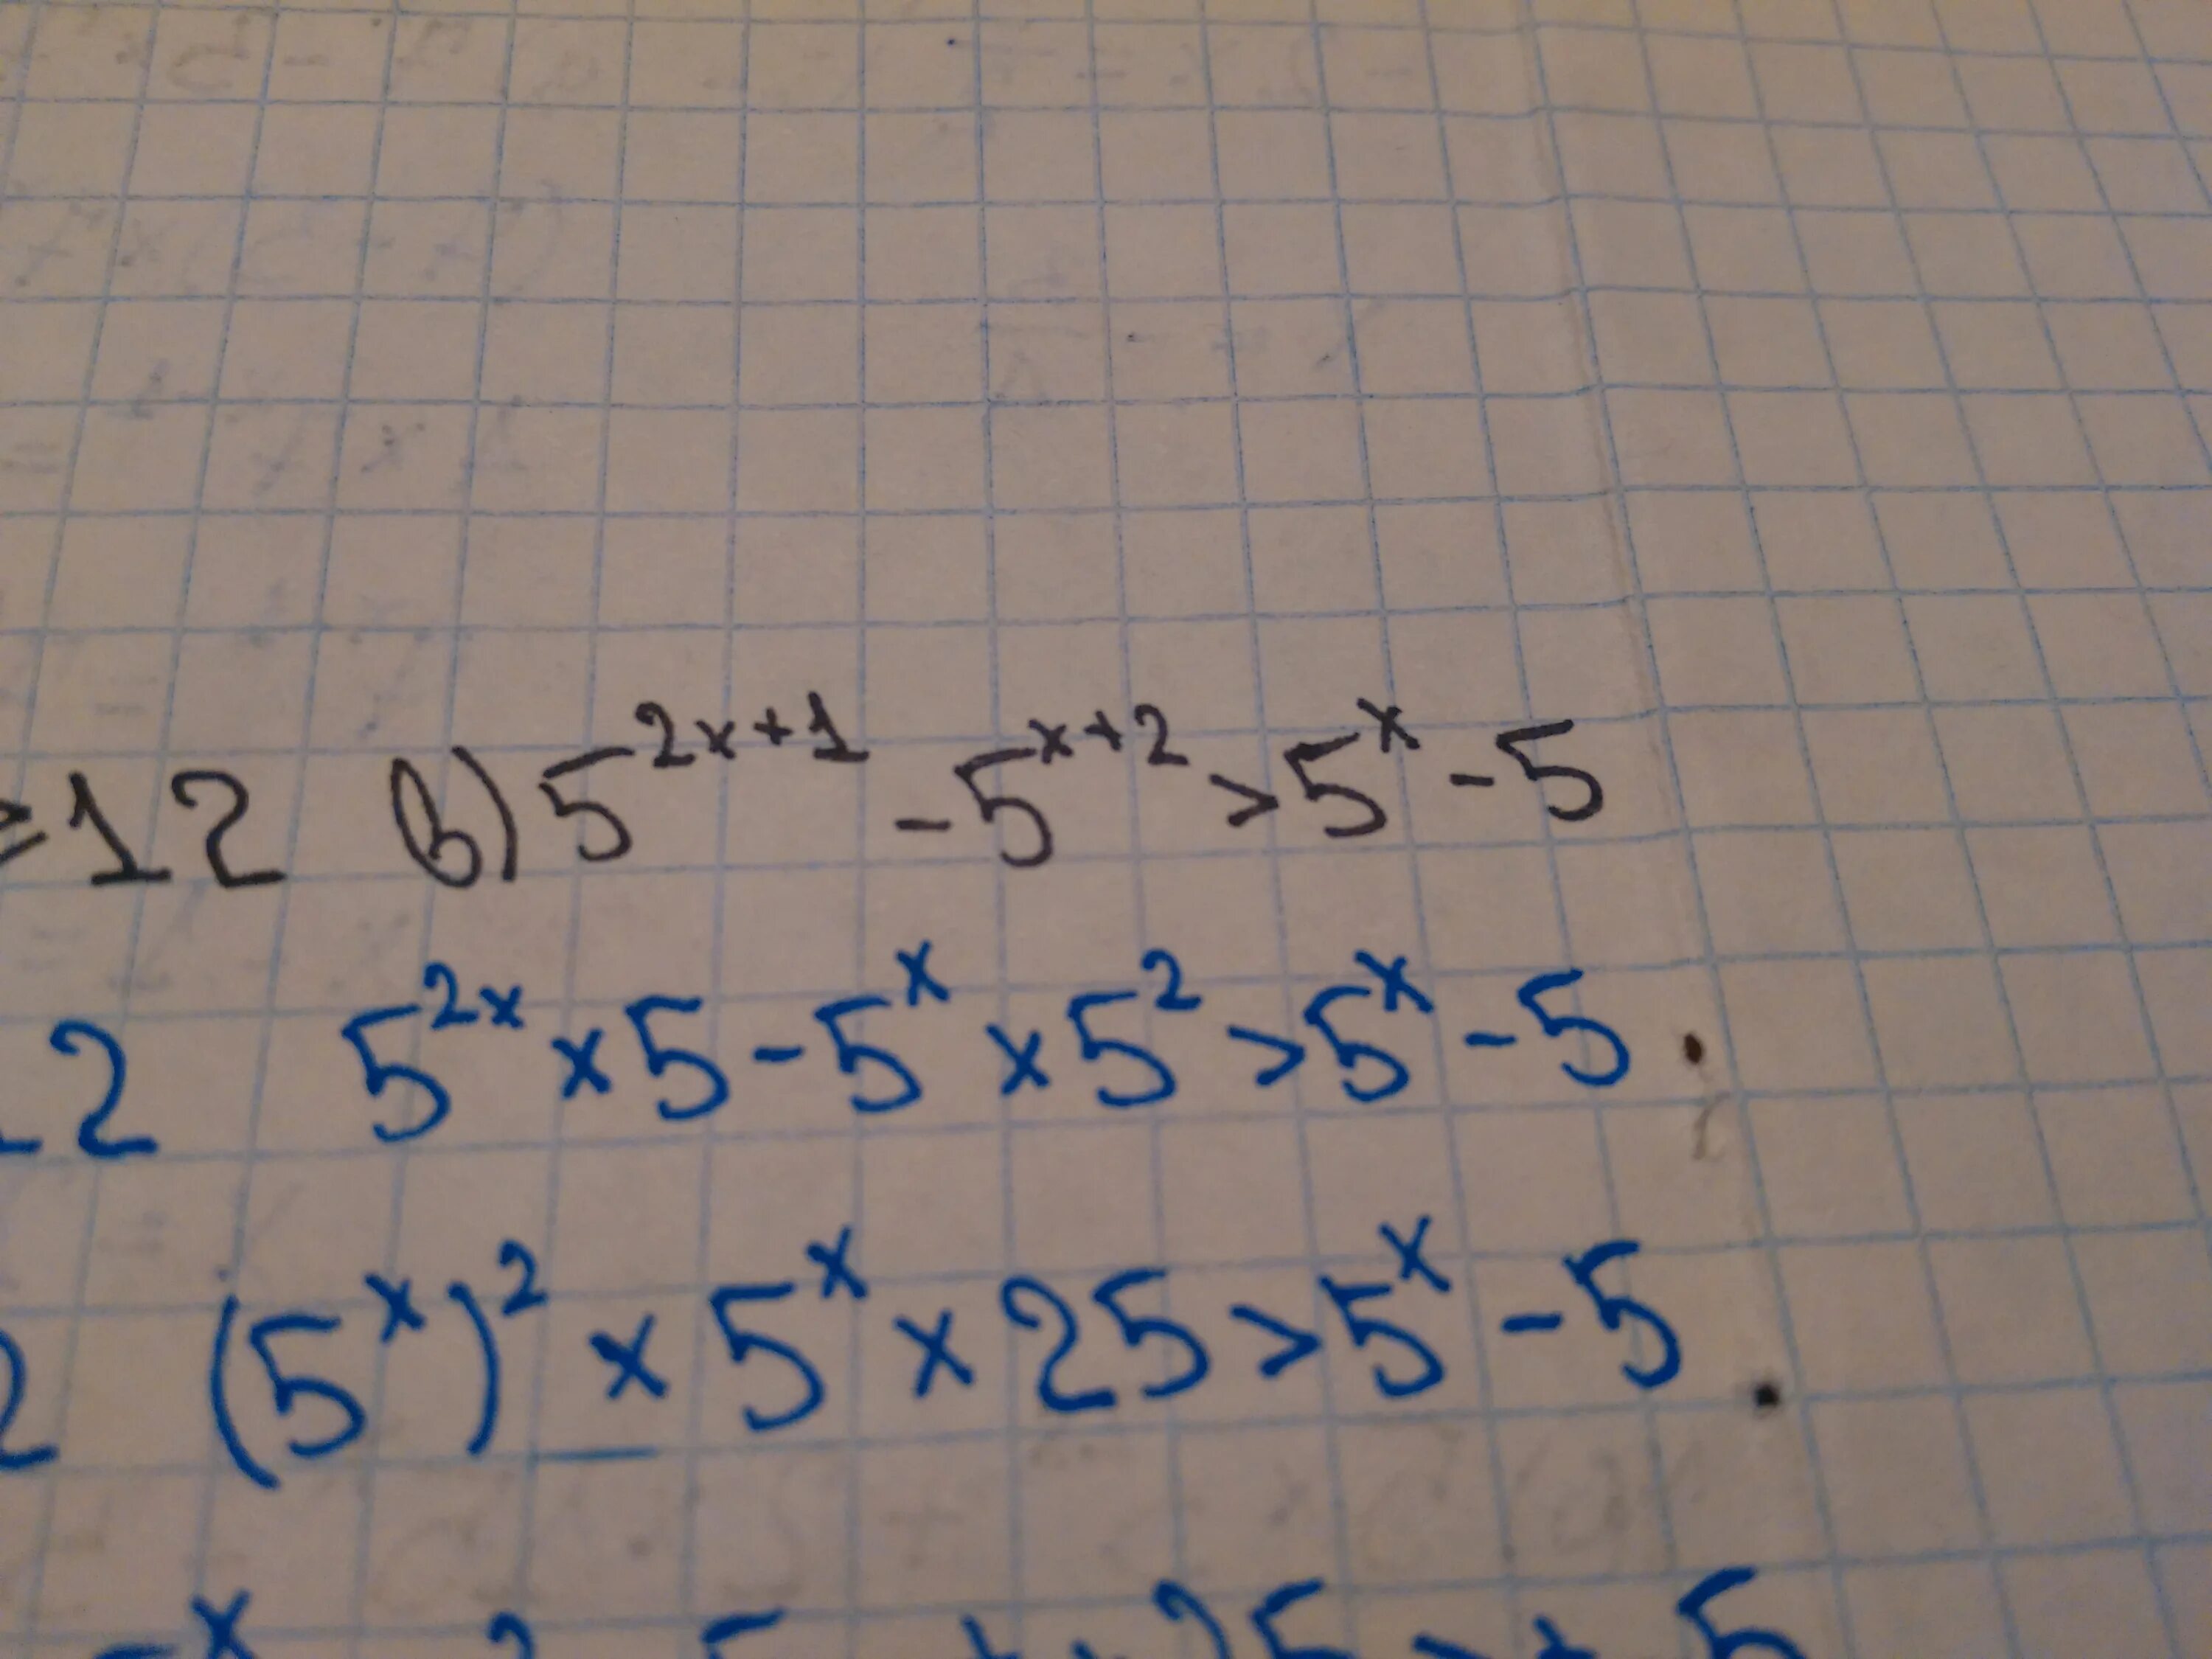 ≥12 в) 5^{2x+1} - 5^{x+2} > 5^x - 5
2 5^{2x} × 5 - 5^x × 5^2 > 5^x - 5
2 (5^x)^2 × 5^x × 25 > 5^x - 5